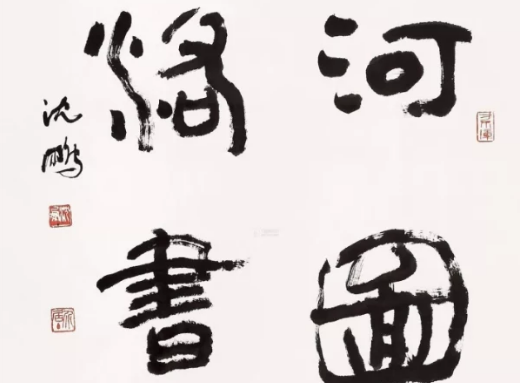 河圖
洛書
沈鵬